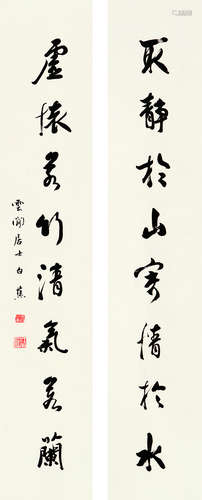 取靜於山寄情於水
虛懷若竹清氣若蘭
雲間居士白蕉